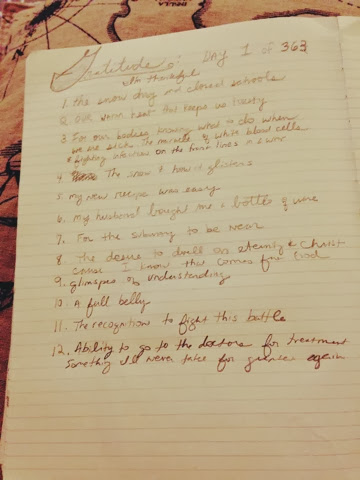 Gratitude: DAY 1 of 363
I'm thankful
1. the snow day and closed schools
2. Our warm heat that keeps us toasty
3. For our bodies knowing what to do when
we are sick. The miracle of white blood cells
fighting infection on the front lines in a war
4. The snow & how it glistens
5. my new recipe was easy
6. my husband bought me a bottle of wine
7. For the subway to be near
8. The desire to dwell on eternity & Christ
cause I know this comes from God
9. glimpses of understanding
10. A full belly
11. The recognition to fight this battle
12. Ability to go to the doctors for treatment
something I'll never take for again